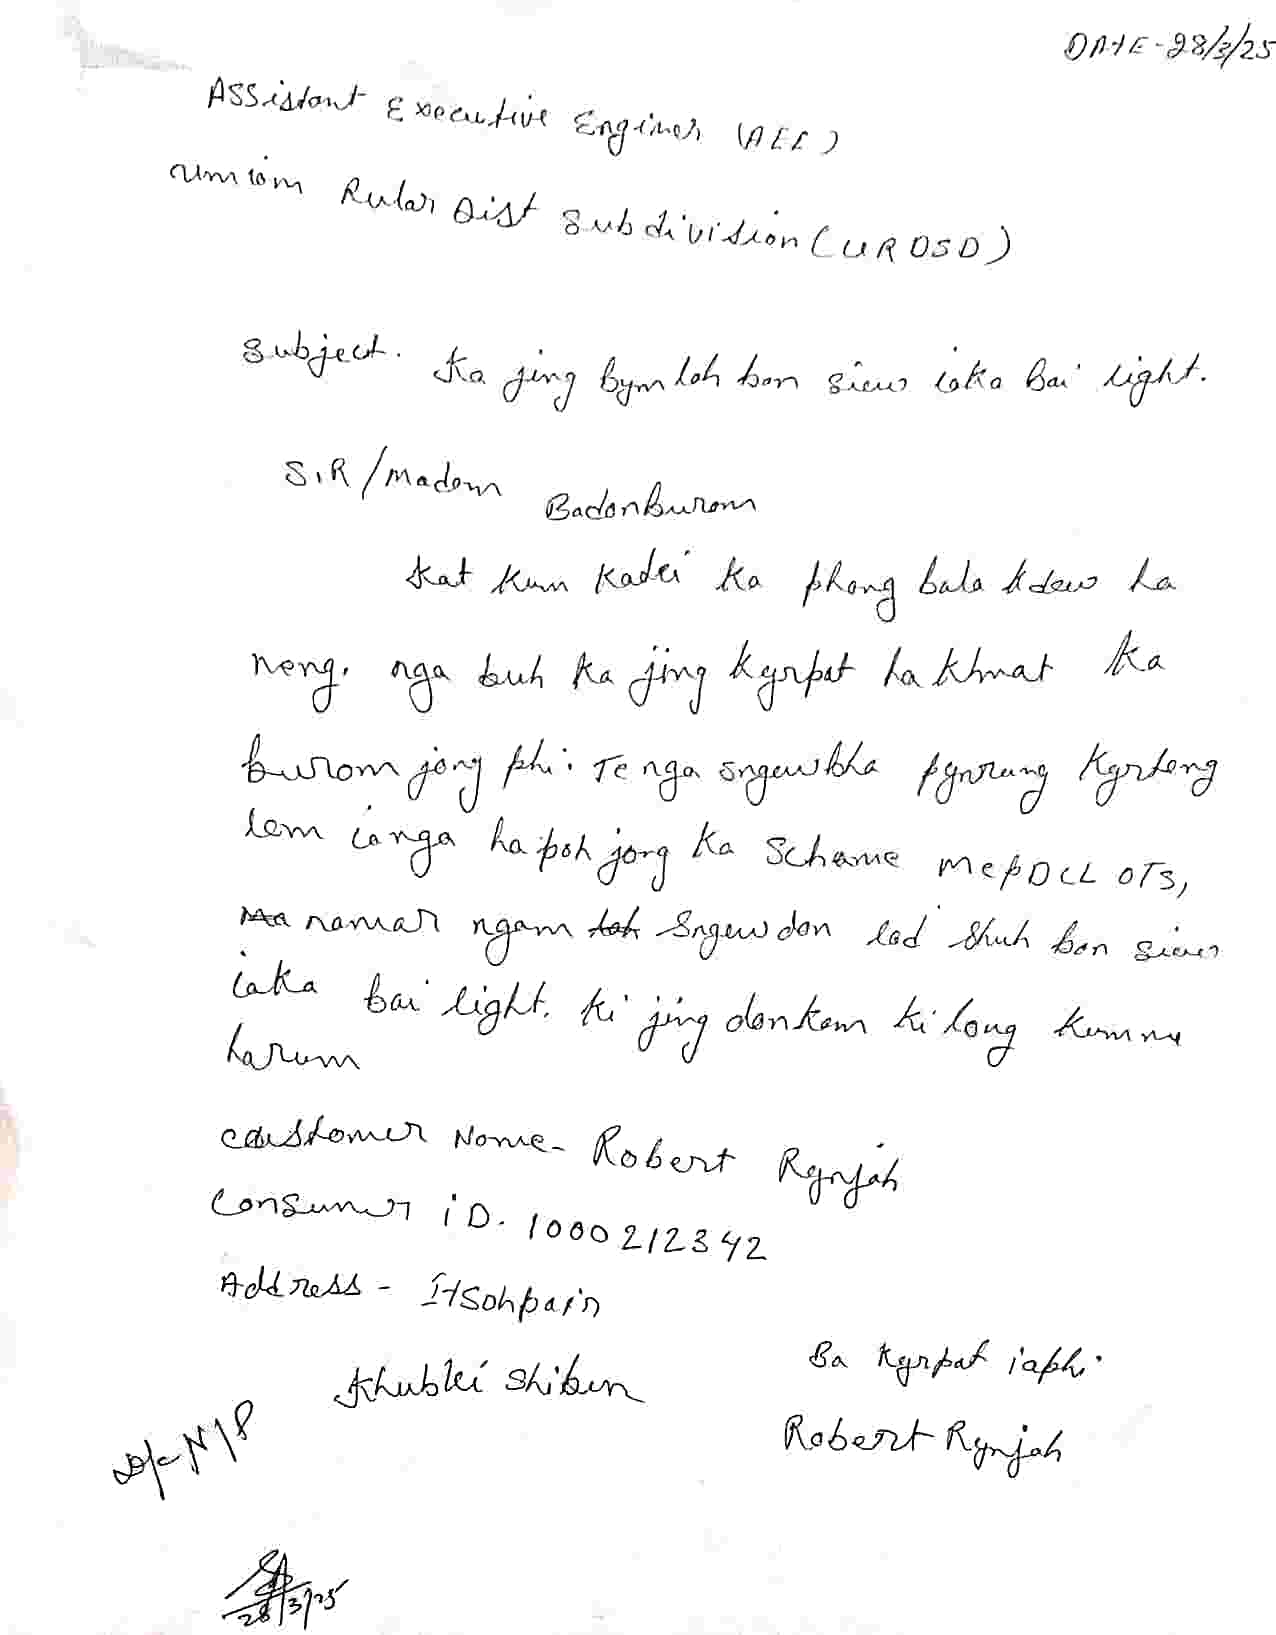 DATE - 28/3/25
Assistant Executive Enginer (AEE)
umiom Rular Dist Subdivision (URDSD)
Subject. Ka jing bym lah ban siew iaka Bai light.
SIR/Madam Badonburom
Kat kum kadei ka phang bala kdew ha
neng. nga buh ka jing kyrpat ha khmat ka
burom jong phi. Te nga sngewbha pynrung kyrteng
lem ianga hapoh jong ka Scheme MePDCL OTS,
namar ngam sngew don lad shuh ban siew
iaka bai light. ki jing donkam ki long kumne
harum
Customer Name - Robert Rynjah
Consumer iD. 1000212342
Address - Itsohpair
Ba kyrpat iaphi.
Khublei Shibun
Robert Rynjah
28/3/25